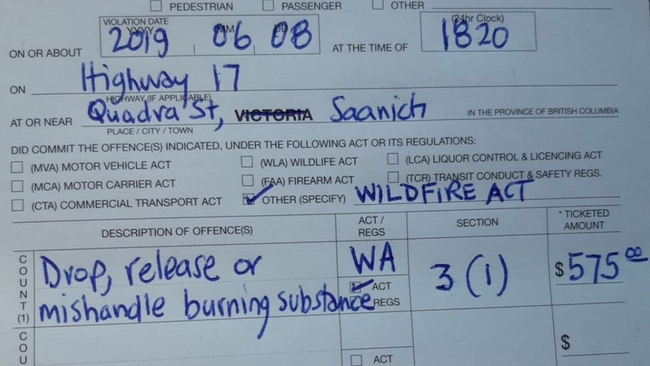 PEDESTRIAN PASSENGER OTHER
VIOLATION DATE (24hr Clock)
YYYY MM DD
ON OR ABOUT 2019 06 08 AT THE TIME OF 1820
ON Highway 17
HIGHWAY (IF APPLICABLE)
AT OR NEAR Quadra St, VICTORIA Saanich IN THE PROVINCE OF BRITISH COLUMBIA
PLACE / CITY / TOWN
DID COMMIT THE OFFENCE(S) INDICATED, UNDER THE FOLLOWING ACT OR ITS REGULATIONS:
(MVA) MOTOR VEHICLE ACT (WLA) WILDLIFE ACT (LCA) LIQUOR CONTROL & LICENCING ACT
(MCA) MOTOR CARRIER ACT (FAA) FIREARM ACT (TCR) TRANSIT CONDUCT & SAFETY REGS.
(CTA) COMMERCIAL TRANSPORT ACT OTHER (SPECIFY) WILDFIRE ACT
DESCRIPTION OF OFFENCE(S) ACT / REGS SECTION * TICKETED AMOUNT
COUNT (1) Drop, release or WA 3 (1) $ 575 00
mishandle burning substance ACT REGS
COU $
ACT